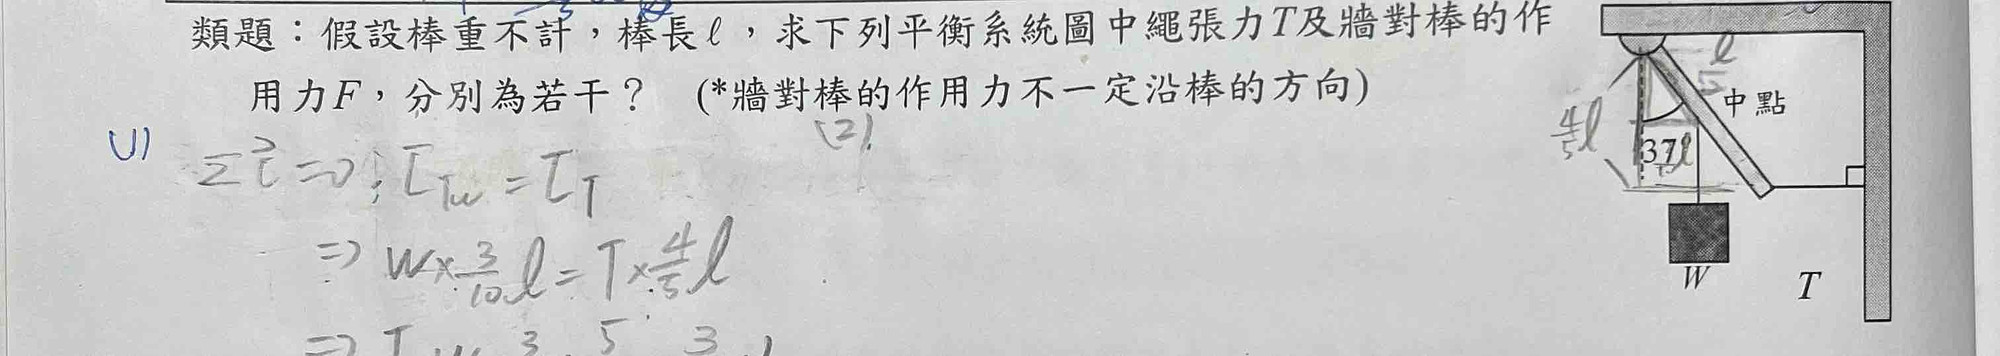 類題：假設棒重不計，棒長ℓ，求下列平衡系統圖中繩張力T及牆對棒的作
用力F，分別為若干？ (*牆對棒的作用力不一定沿棒的方向)
(1)
(2)
Στ⃗=0; τ_Tw = τ_T
⇒ W×3/10 ℓ = T×4/5 ℓ
ℓ
中點
4/5 ℓ
37
W
T